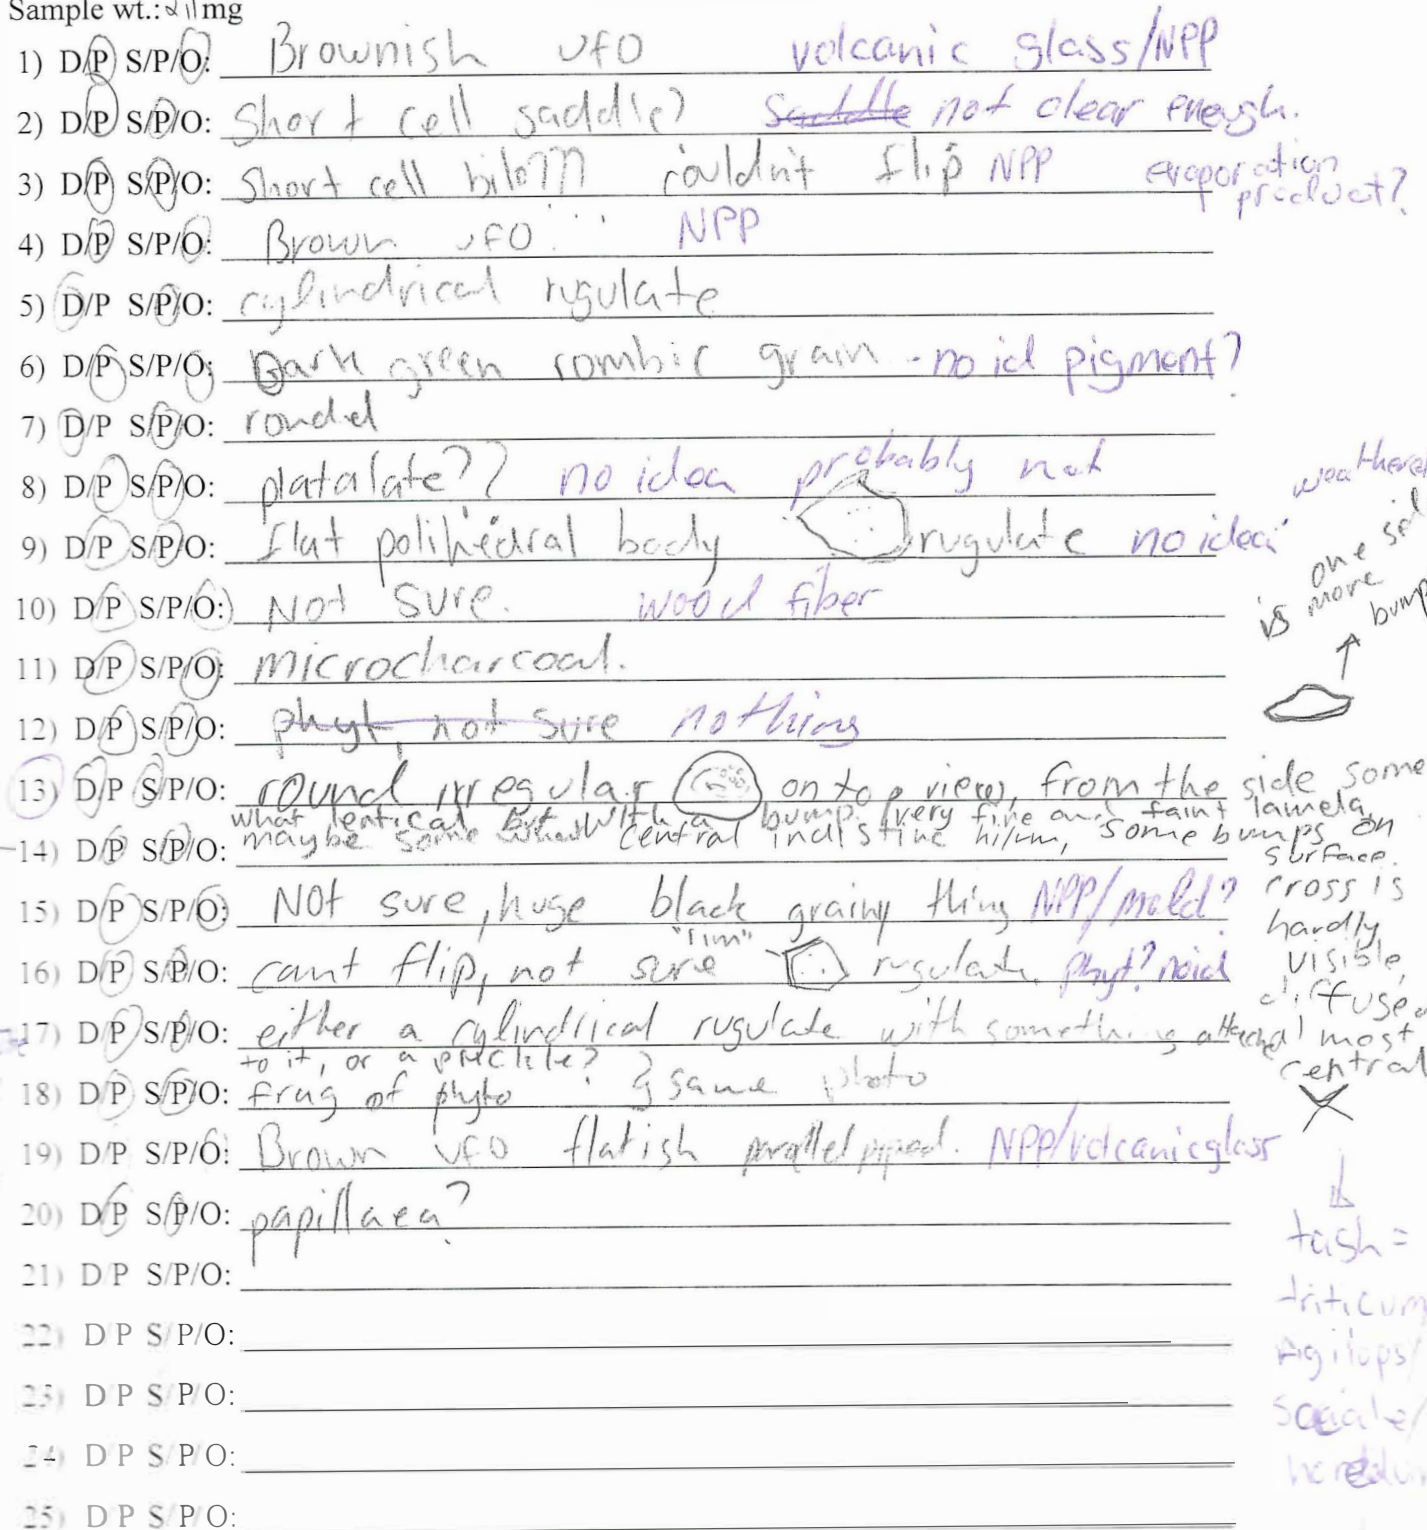 Sample wt.: mg
1) D/P S/P/O: Brownish UFO volcanic glass/NPP
2) D/P S/P/O: Short cell saddle? Saddle not clear enough.
3) D/P S/P/O: Short cell bilo??? couldn't flip NPP evaporation product?
4) D/P S/P/O: Brown UFO NPP
5) D/P S/P/O: cylindrical rugulate
6) D/P S/P/O: Dark green rombic grain - no id pigment?
7) D/P S/P/O: rondel
8) D/P S/P/O: platalate?? no idea probably not
weathered
9) D/P S/P/O: flat polihedral body rugulate no idea
one sid
is more bump
10) D/P S/P/O: Not sure. wood fiber
11) D/P S/P/O: microcharcoal.
12) D/P S/P/O: phyt, not sure nothing
13) D/P S/P/O: round irregular on top view, from the side some
what lentical but with a bump. very fine and faint lamela,
14) D/P S/P/O: maybe some what central indistinc hilum, some bumps on
surface.
cross is
hardly
visible,
diffuse
most
central
15) D/P S/P/O: NOt sure, huge black grainy thing NPP/mold?
16) D/P S/P/O: cant flip, not sure "rim" rugulate. phyt? noid
17) D/P S/P/O: either a cylindrical rugulate with something attached
to it, or a prickle?
18) D/P S/P/O: frag of phyto same photo
19) D/P S/P/O: Brown UFO flatish parallelpiped. NPP/volcanic glass
20) D/P S/P/O: papillaea?
21) D/P S/P/O:
22) D P S/P/O:
23) D P S P/O:
24) D P S P/O:
25) D P S P/O:
tash =
triticum
Agilops/
secale/